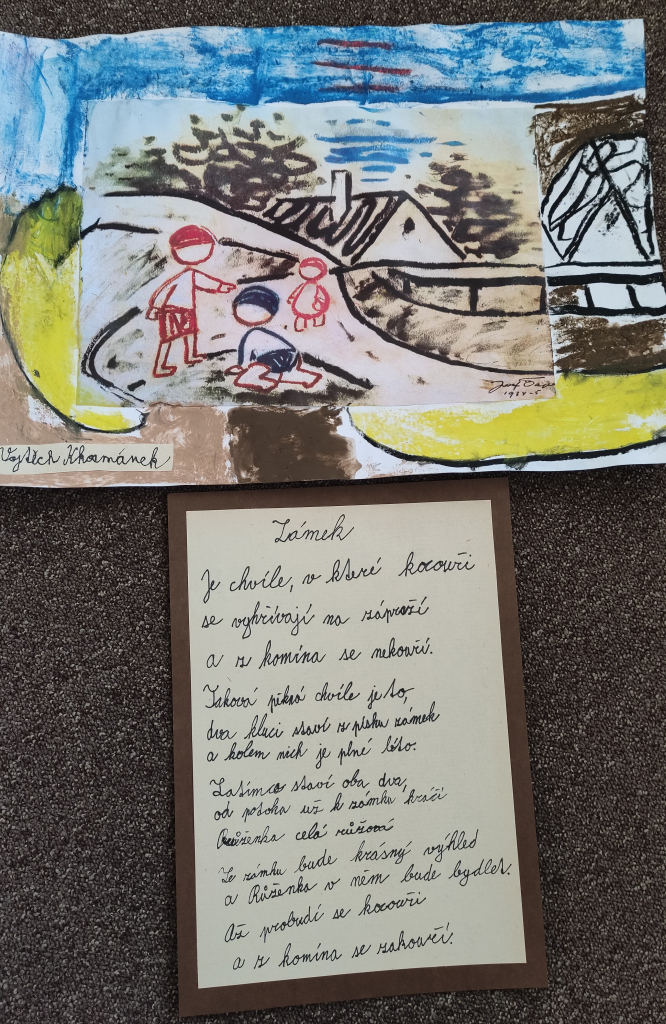 Vojtěch Khosmánek
Zámek
Je chvíle, v které kocouři
se vyhřívají na zápraží
a z komína se nekouří.
Taková pěkná chvíle je to,
dva kluci staví z písku zámek
a kolem nich je plné léto.
Zatímco staví oba dva,
od potoka už k zámku kráčí
Růženka celá růžová
Ze zámku bude krásný výhled
a Růženka v něm bude bydlet.
Až probudí se kocouři
a z komína se zakouří.